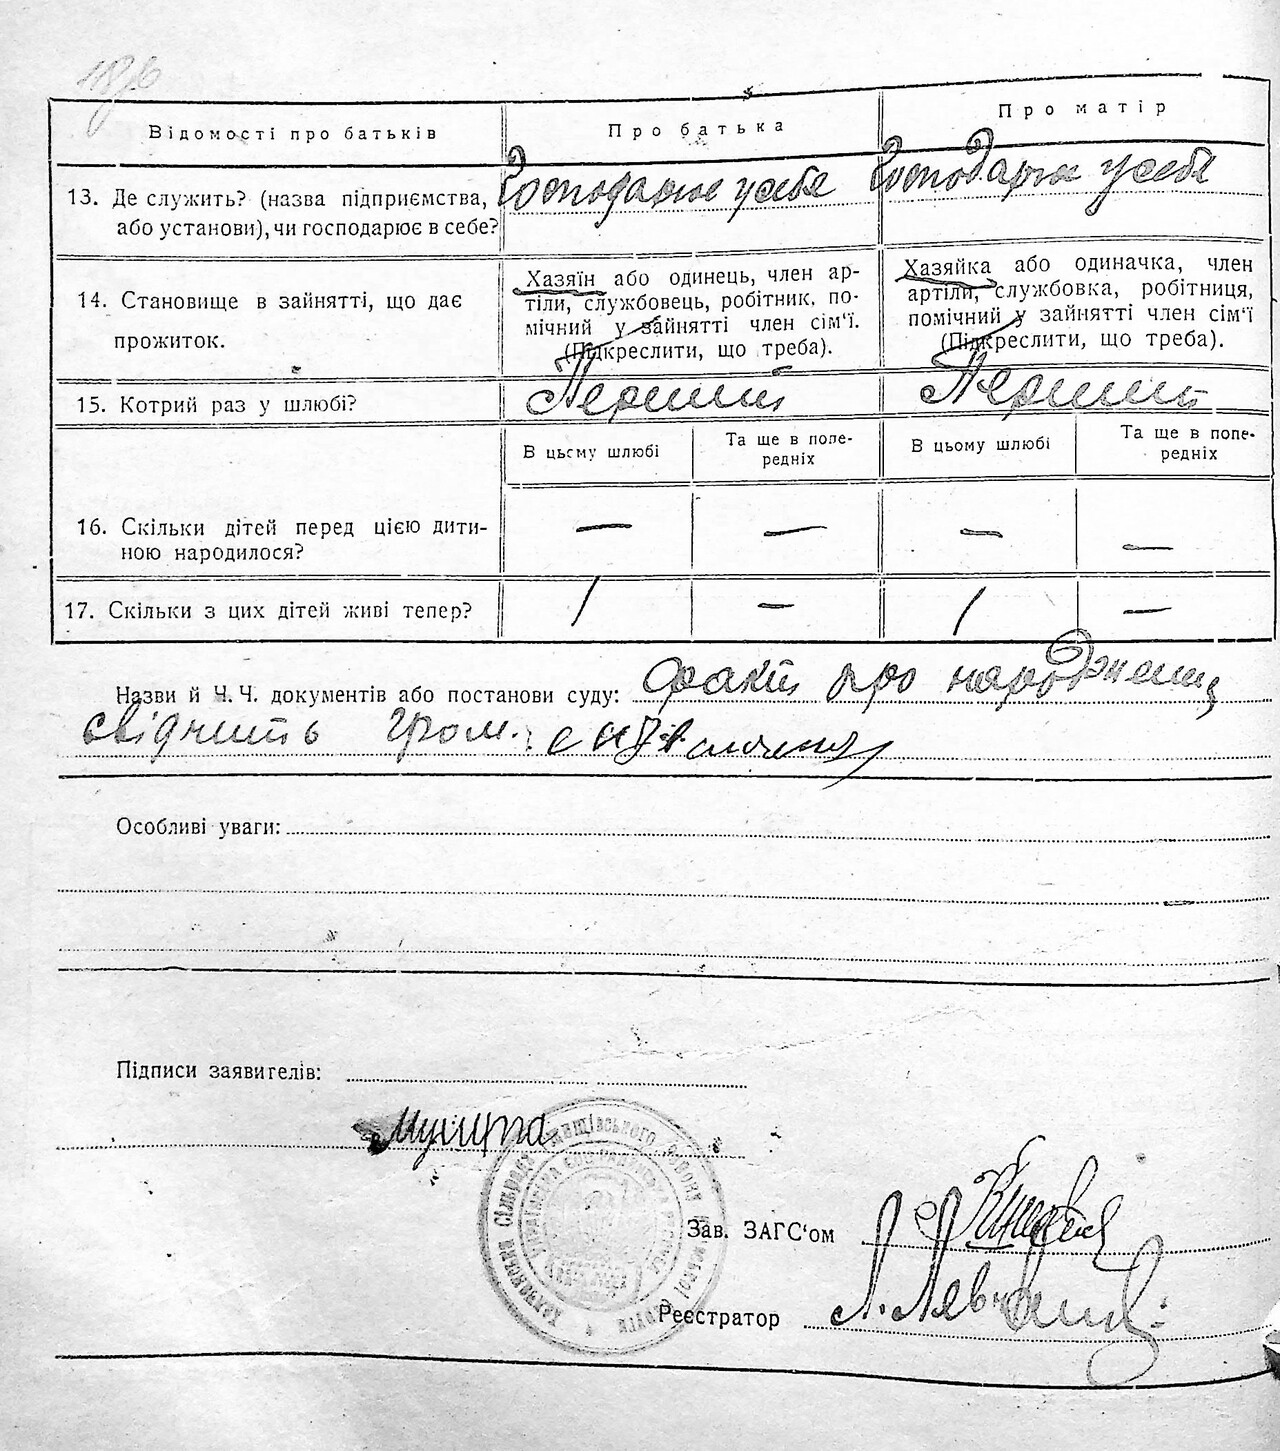 Відомості про батьків
Про батька
Про матір
13. Де служить? (назва підприємства,
або установи), чи господарює в себе?
Господарює у себе
Господарює у себе
14. Становище в зайнятті, що дає
прожиток.
Хазяїн або одинець, член ар-
тіли, службовець, робітник, по-
мічний у зайнятті член сім'ї.
(Підкреслити, що треба).
Хазяйка або одиначка, член
артіли, службовка, робітниця,
помічний у зайнятті член сім'ї
(Підкреслити, що треба).
15. Котрий раз у шлюбі?
Перший
Перший
В цьому шлюбі
Та ще в попе-
редніх
В цьому шлюбі
Та ще в попе-
редніх
16. Скільки дітей перед цією дити-
ною народилося?
—
—
—
—
17. Скільки з цих дітей живі тепер?
/
—
/
—
Назви й Ч.Ч. документів або постанови суду: факт про народження
свідчить гром.
Особливі уваги:
Підписи заявителів:
Зав. ЗАГС'ом
Реєстратор